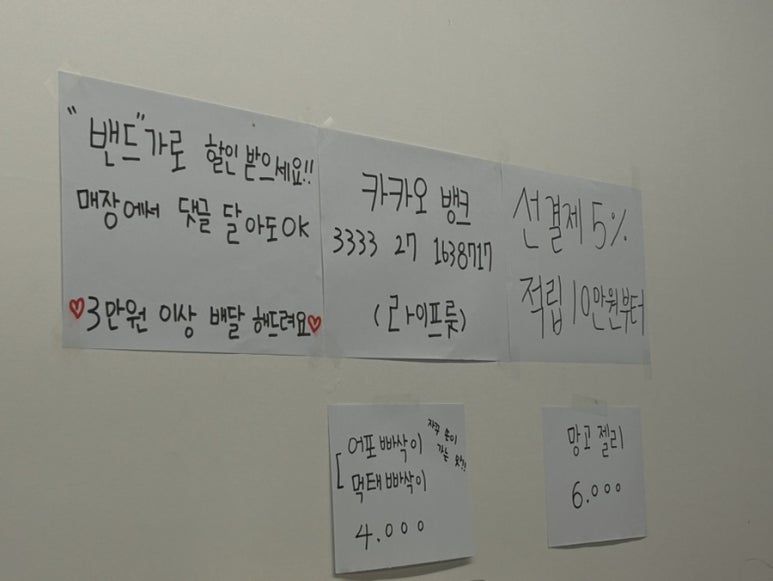 "밴드"가로 할인 받으세요!!
매장에서 댓글 달아도OK
♡3만원 이상 배달 해드려요♡
카카오 뱅크
3333 27 1638717
(라이프룻)
선결제 5%
적립 10만원부터
어포 빠삭이
먹태 빠삭이
4.000
자꾸 손이
가는 맛!!
망고 젤리
6.000